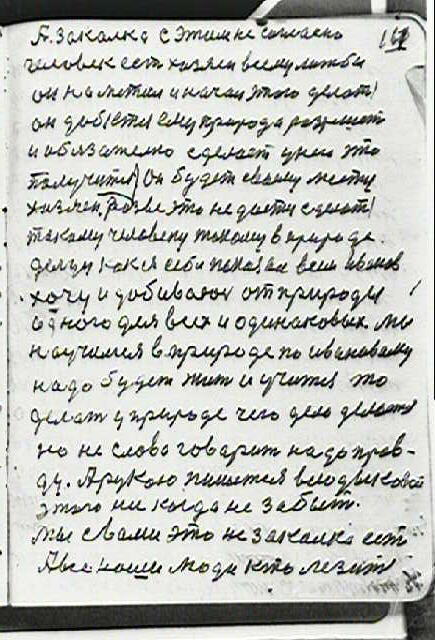 161
А. Закалка с этим не согласно
человек ест хозяен всему лижби
он наметил и начал этого делат
он добьется ему природа разришит
и обязателно сделает у них это
получится Он будет своему месту
хозяен, разве это не дасти сделат
такому человеку такому в природе
делци какся себи показал всем Иванов
хочу и добиваюс от природы
одного для всех и одинаковых мы
научимся в природе по ивановаму
надо будет жит и учится то
делат у природе чего дело делает
но не слово говарит надо прав-
ду. А рукою пишется владыкова
этого ни когда не забыт.
Мы с вами это не закалка ест
А все наши люди кто лезит